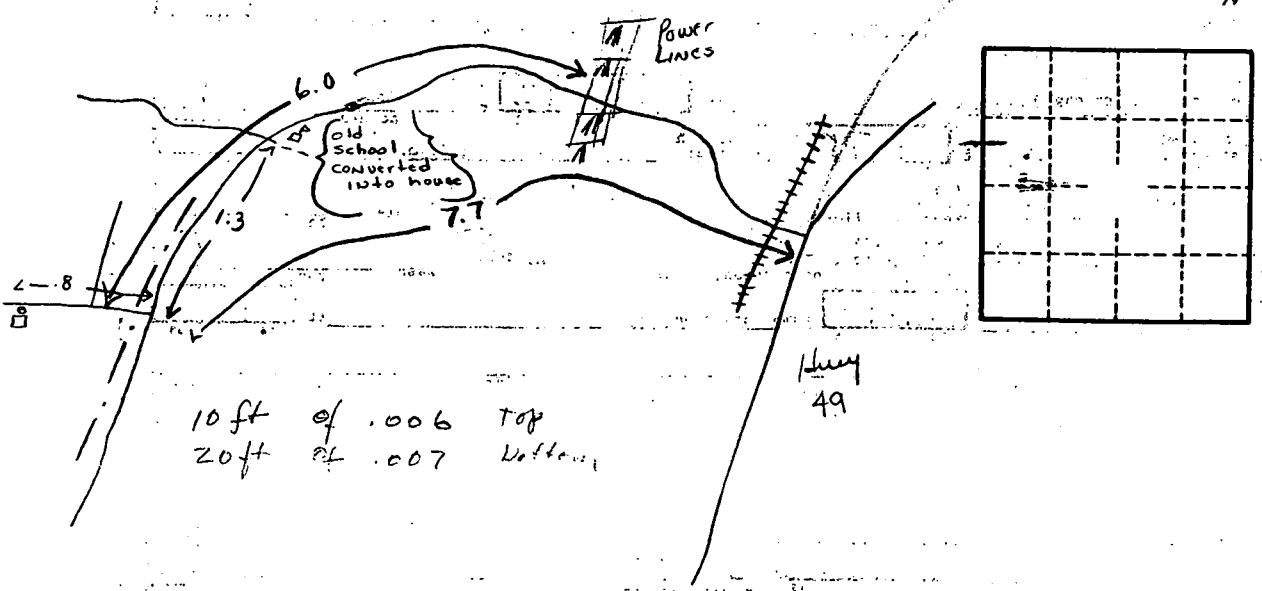 N
Power
Lines
6.0
old
School
converted
Into house
1.3
7.7
.8
Hwy
49
10 ft of .006 Top
20 ft of .007 Bottom